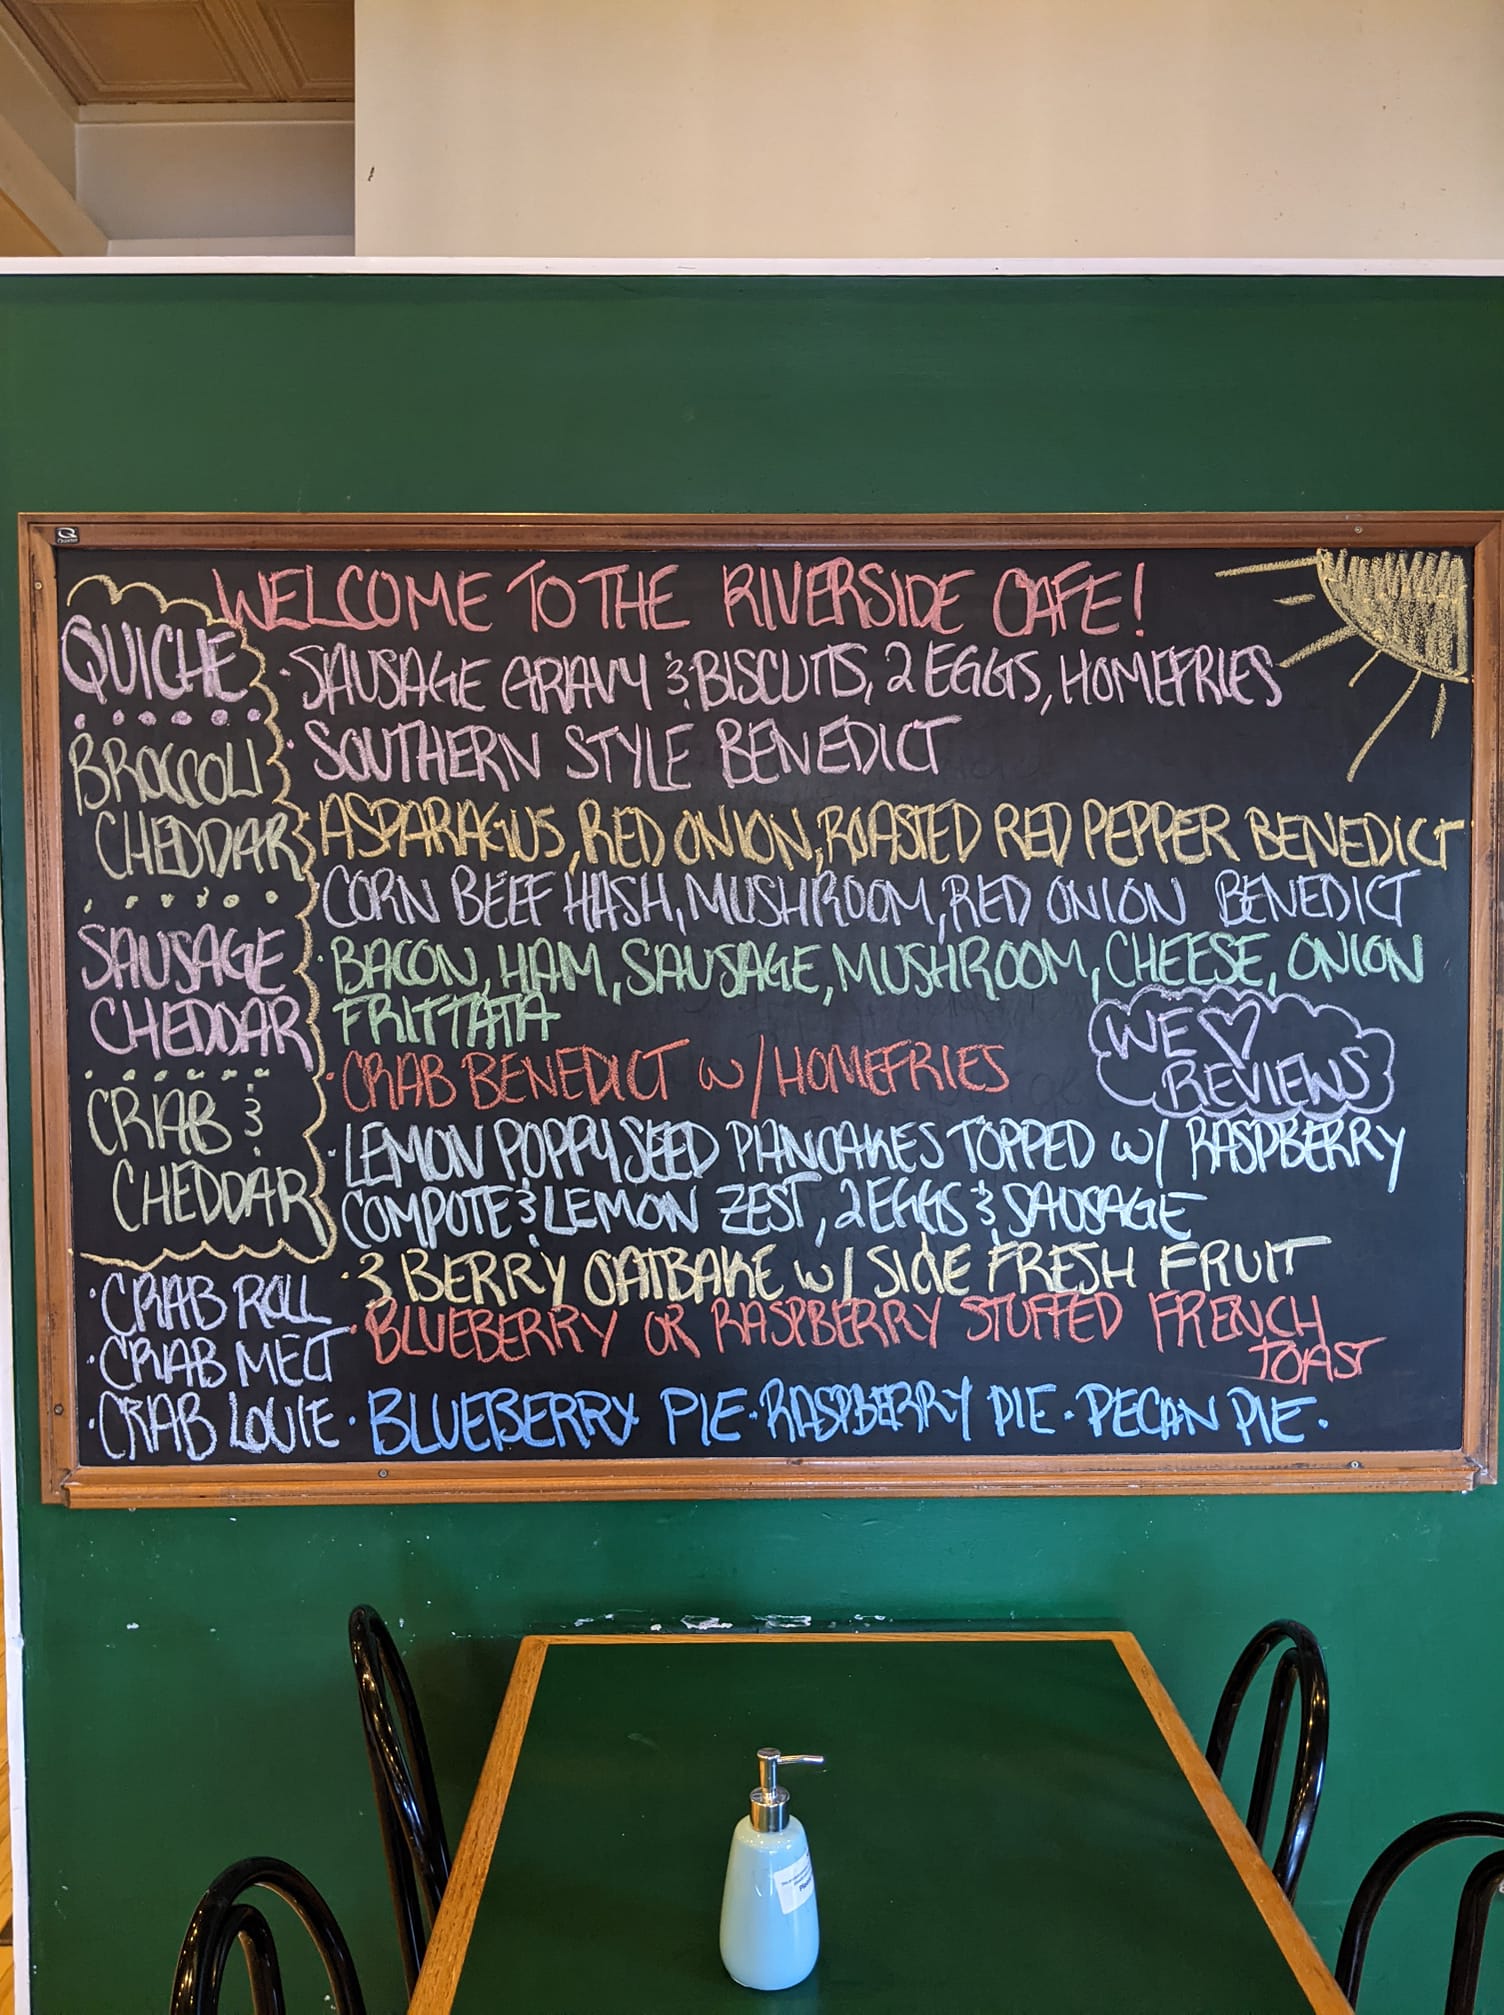 WELCOME TO THE RIVERSIDE CAFE!
QUICHE
BROCCOLI
CHEDDAR
SAUSAGE
CHEDDAR
CRAB &
CHEDDAR
· CRAB ROLL
· CRAB MELT
· CRAB LOUIE
· SAUSAGE GRAVY & BISCUITS, 2 EGGS, HOMEFRIES
· SOUTHERN STYLE BENEDICT
ASPARAGUS, RED ONION, ROASTED RED PEPPER BENEDICT
CORN BEEF HASH, MUSHROOM, RED ONION BENEDICT
· BACON, HAM, SAUSAGE, MUSHROOM, CHEESE, ONION
FRITTATA
· CRAB BENEDICT W/HOMEFRIES
WE ♡
REVIEWS
· LEMON POPPYSEED PANCAKES TOPPED W/ RASPBERRY
COMPOTE & LEMON ZEST, 2 EGGS & SAUSAGE
· 3 BERRY OATBAKE W/ SIDE FRESH FRUIT
· BLUEBERRY OR RASPBERRY STUFFED FRENCH
TOAST
· BLUEBERRY PIE · RASPBERRY PIE · PECAN PIE ·